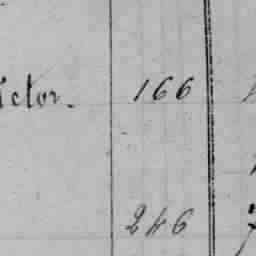 ictor. 166
246